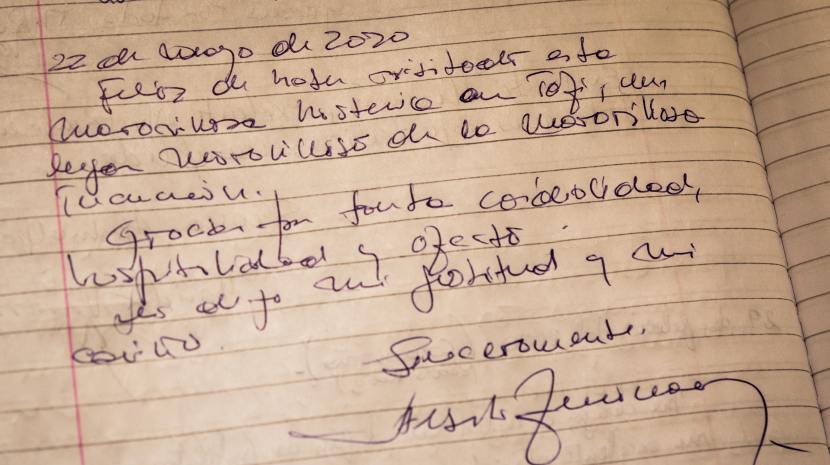 22 de mayo de 2020
Feliz de haber visitado esta
maravillosa historia en Tafi, un
lugar maravilloso de la maravillosa
Tucumán.
Gracias por tanta cordialidad,
hospitalidad y afecto.
Les dejo mi gratitud y mi
cariño.
Sinceramente.